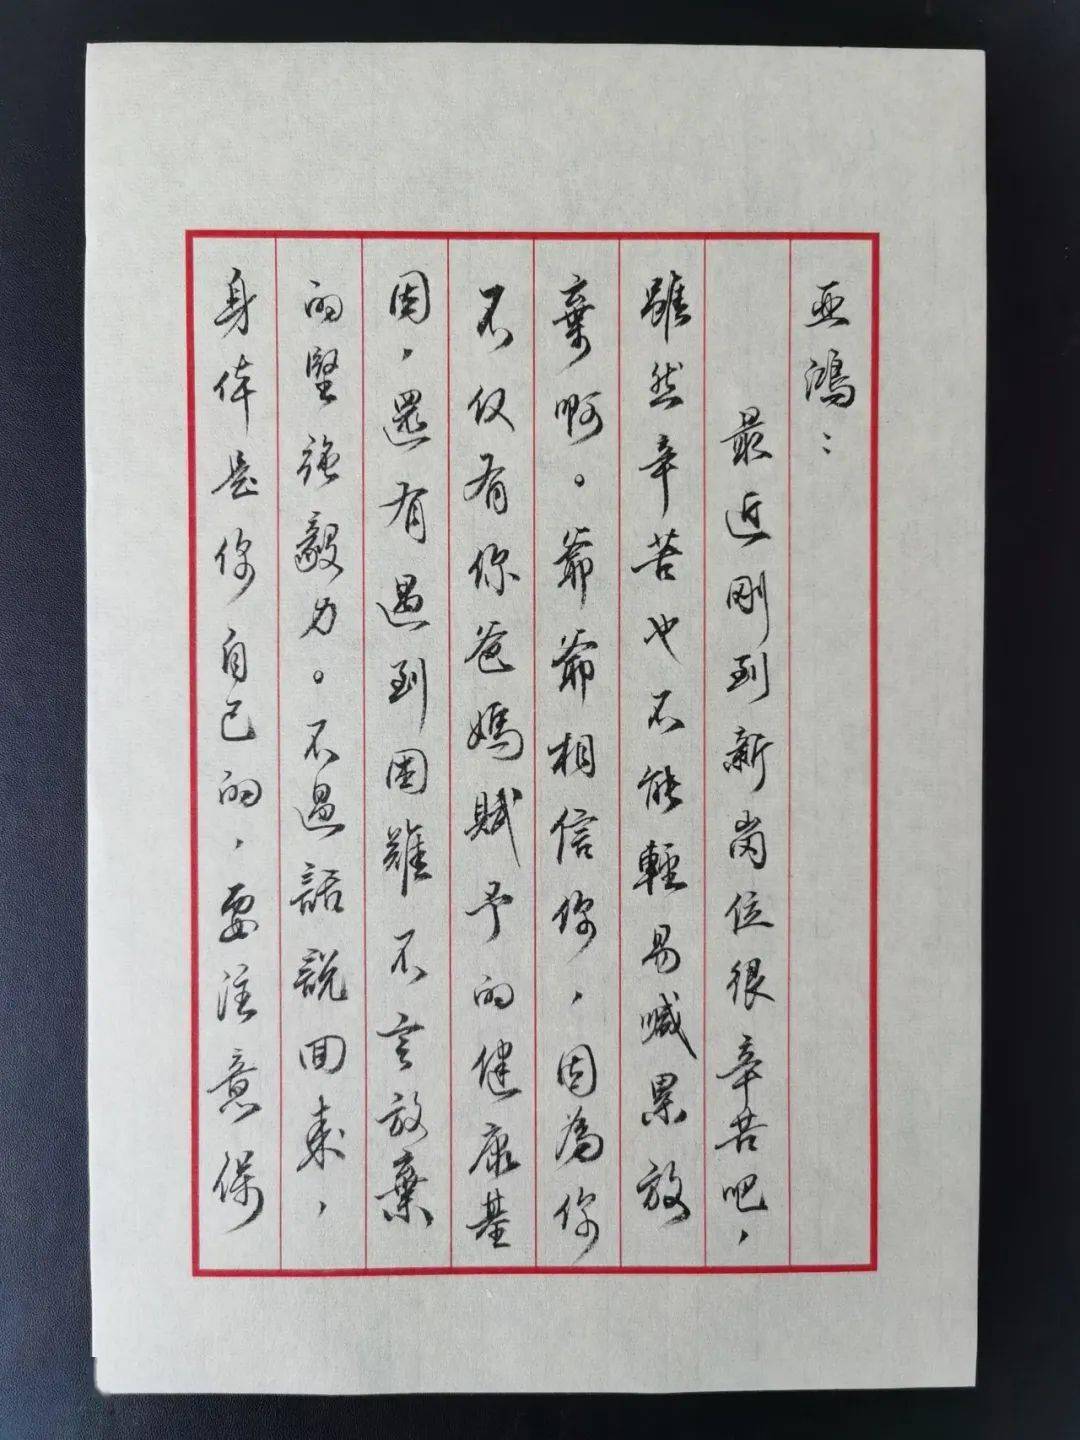 亚鴻：
最近剛到新崗位很辛苦吧，
雖然辛苦也不能輕易喊累放
棄啊。爺爺相信你，因為你
不仅有你爸媽賦予的健康基
因，還有遇到困難不言放棄
的堅強毅力。不過話說回來，
身体是你自己的，要注意保